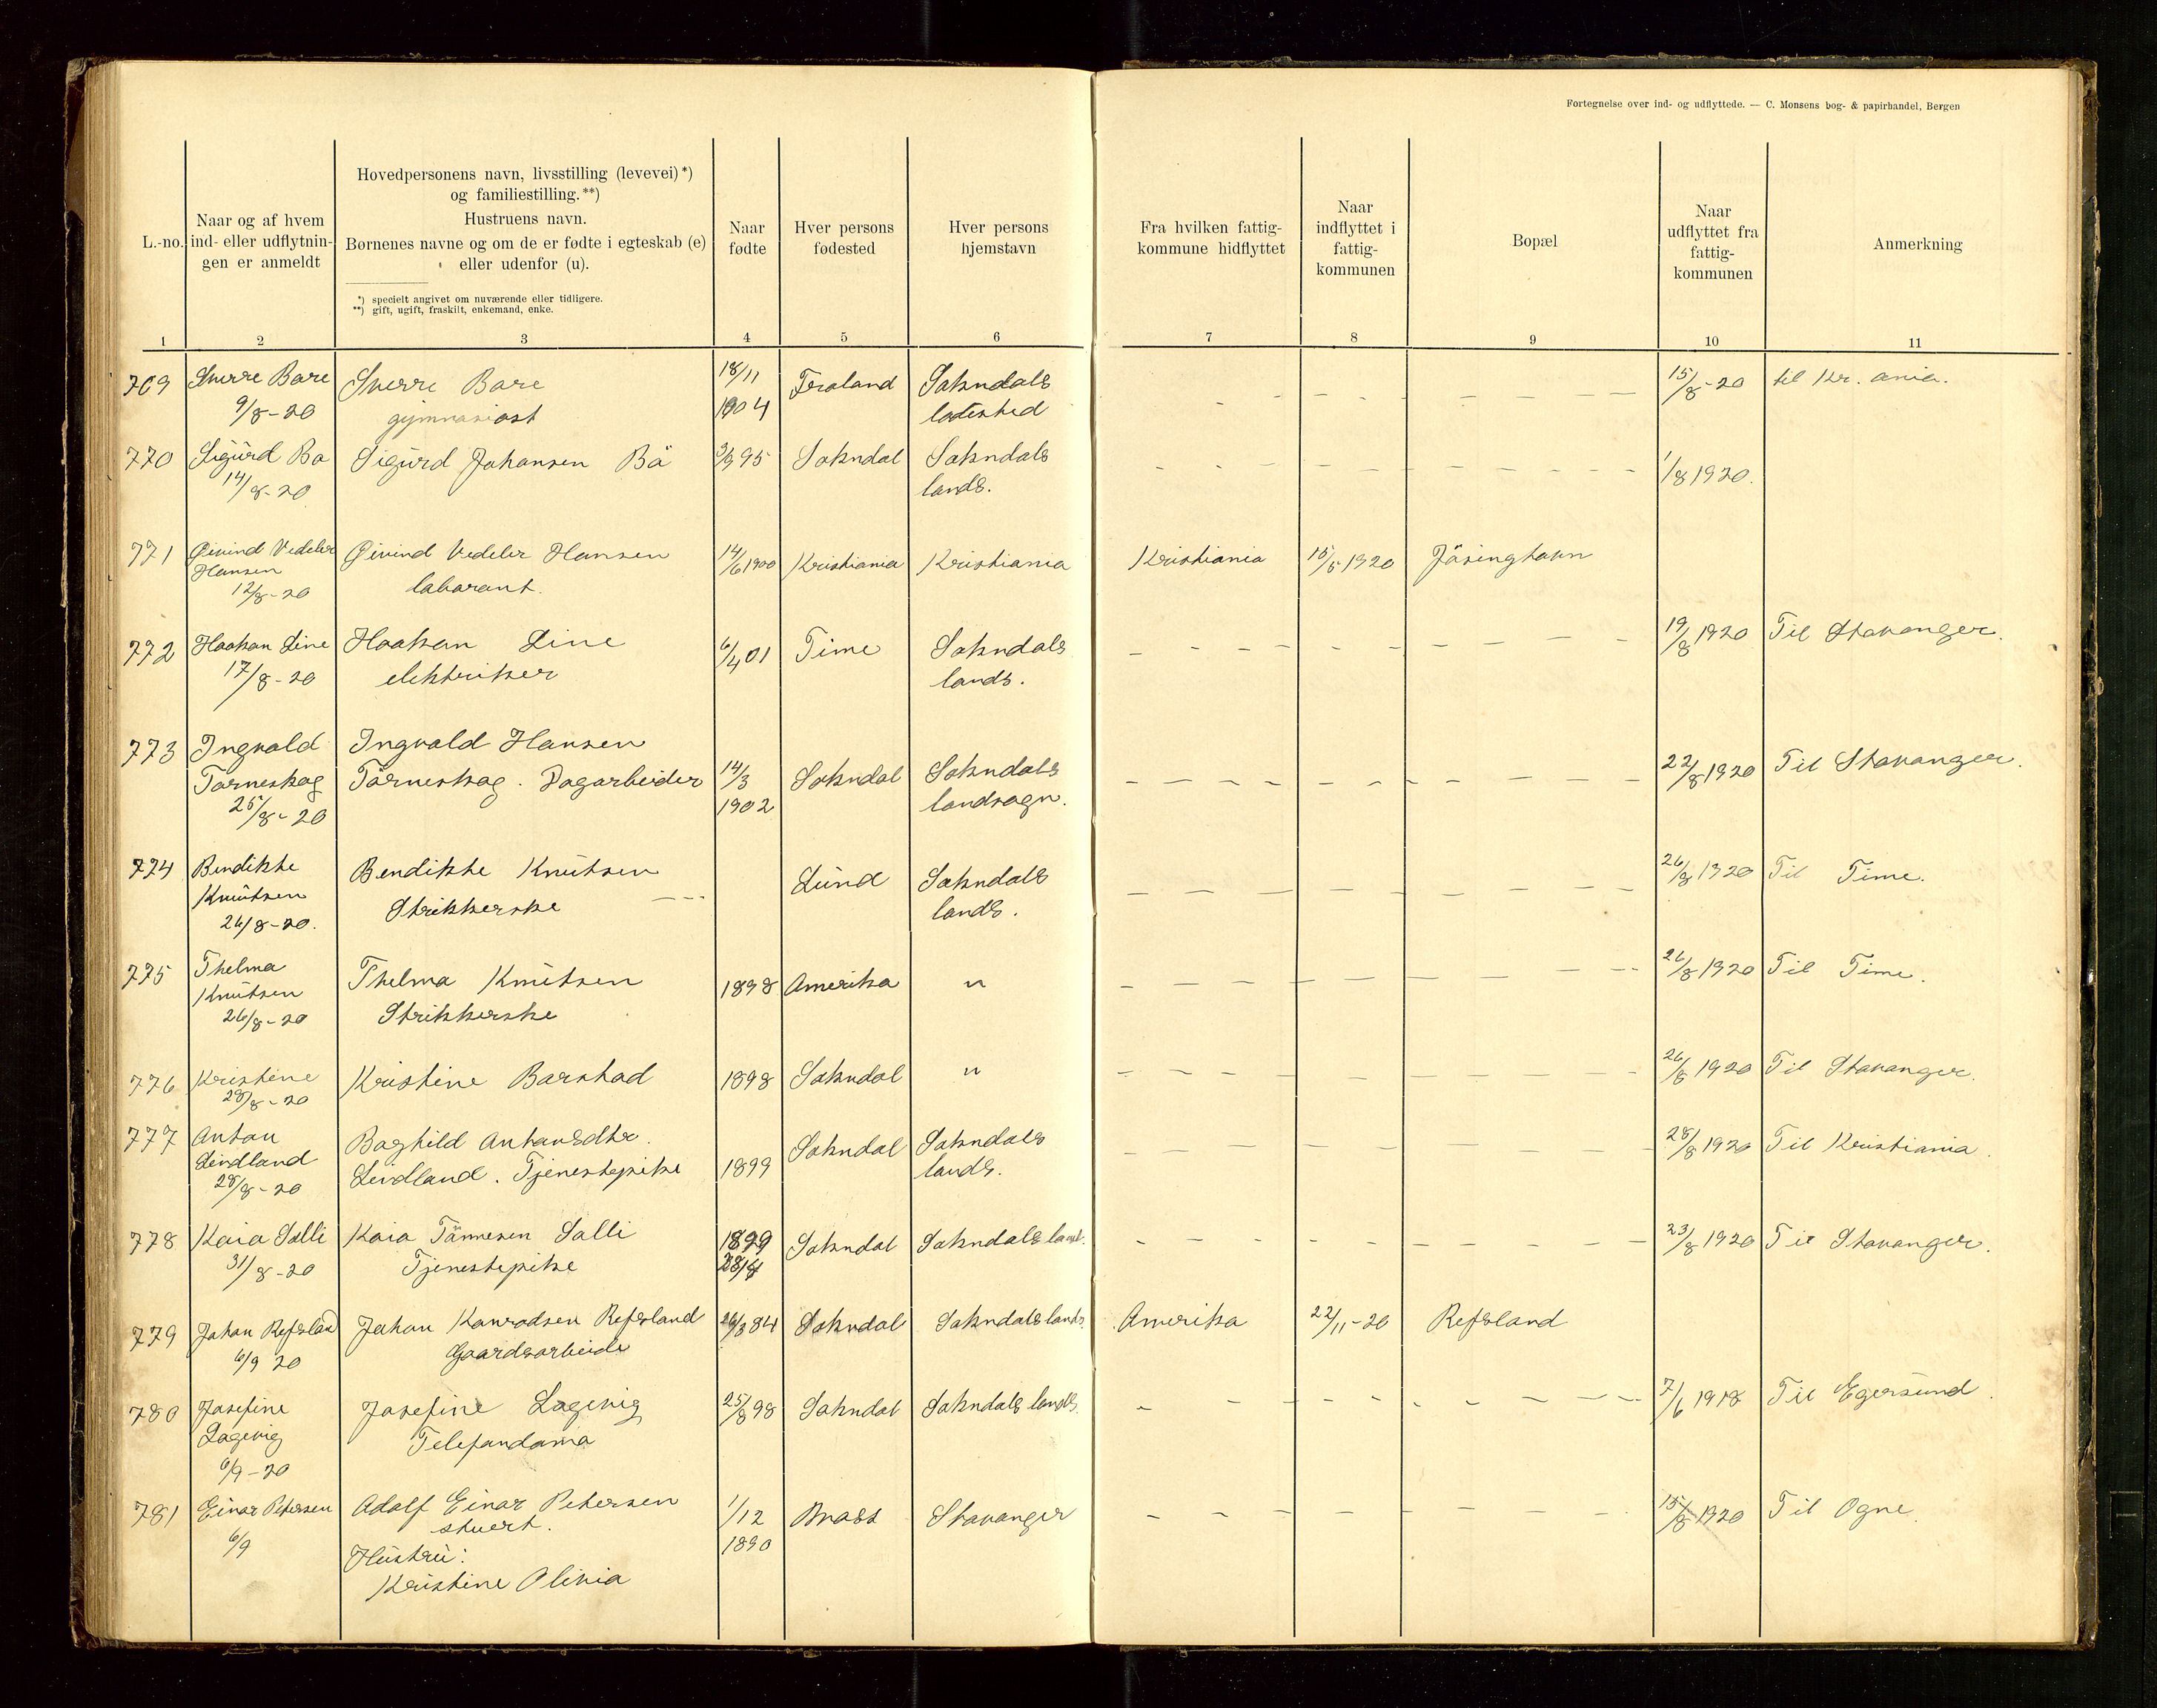 Fortegnelse over ind- og udflyttede. — C. Monsens bog- & papirhandel, Bergen
L.-no.
Naar og af hvem
ind- eller udflytnin-
gen er anmeldt
Hovedpersonens navn, livsstilling (levevei)*)
og familiestilling.**)
Hustruens navn.
Børnenes navne og om de er fødte i egteskab (e)
eller udenfor (u).
*) specielt angivet om nuværende eller tidligere.
**) gift, ugift, fraskilt, enkemand, enke.
Naar
fødte
Hver persons
fødested
Hver persons
hjemstavn
Fra hvilken fattig-
kommune hidflyttet
Naar
indflyttet i
fattig-
kommunen
Bopæl
Naar
udflyttet fra
fattig-
kommunen
Anmerkning
1 2 3 4 5 6 7 8 9 10 11
769 Sverre Bore Sverre Bore 18/11 Froland Sokndals 15/8-20 til Kr. ania.
9/8-20 gymnasiast 1904 ladested
770 Sigurd Bø Sigurd Johansen Bö 95 Sokndal Sokndals 1/8 1920.
14/8-20 lands.
771 Øivind Vedeler Øivind Vedeler Hansen 14/6 1900 Kristiania Kristiania Kristiania 15/5 1920 Jösinghavn
Hansen
12/8-20 laborant.
772 Haakon Line Haakon Line 6/4 01 Time Sokndals 19/8 1920 Til Stavanger.
17/8-20 elektriker lands.
773 Ingvald Ingvald Hansen
Törneskog Törneskog. Dagarbeider 14/3 Sokndal Sokndals 22/8 1920 Til Stavanger.
25/8-20 1902 landsogn.
774 Bendikke Bendikke Knutsen Lund Sokndals 26/8 1920 Til Time.
Knutsen Strikkerske lands.
26/8-20.
775 Thelma Thelma Knutsen 1898 Amerika " 26/8 1920 Til Time.
Knutsen
26/8-20 Strikkerske
776 Kristine Kristine Barstad 1898 Sokndal " 26/8 1920 Til Stavanger.
28/8-20
777 Anton Boghild Antonsdtr. Sokndal Sokndals 28/8 1920 Til Kristiania.
Lindland Lindland. Tjenestepike 1899 lands.
28/8-20
778 Kaia Salli Kaia Tönnesen Salli 1899 Sokndal Sokndals land. 23/8 1920 Til Stavanger.
31/8-20 Tjenestepike 28/8
779 Johan Refsland Johan Konradsen Refsland 26/3 84 Sokndal Sokndals lands. Amerika 22/11-20 Refsland
6/9 20 Gaardsarbeide
780 Josefine Josefine Løgevig 25/8 98 Sokndal Sokndals lands. 7/6 1918 Til Egersund.
Løgevig Telefondama
6/9-20
781 Einar Petersen Adolf Einar Petersen 1/12 Moss Stavanger 15/8 1920 Til Ogne.
6/9 stuert. 1890
Hustru:
Kristine Olivia